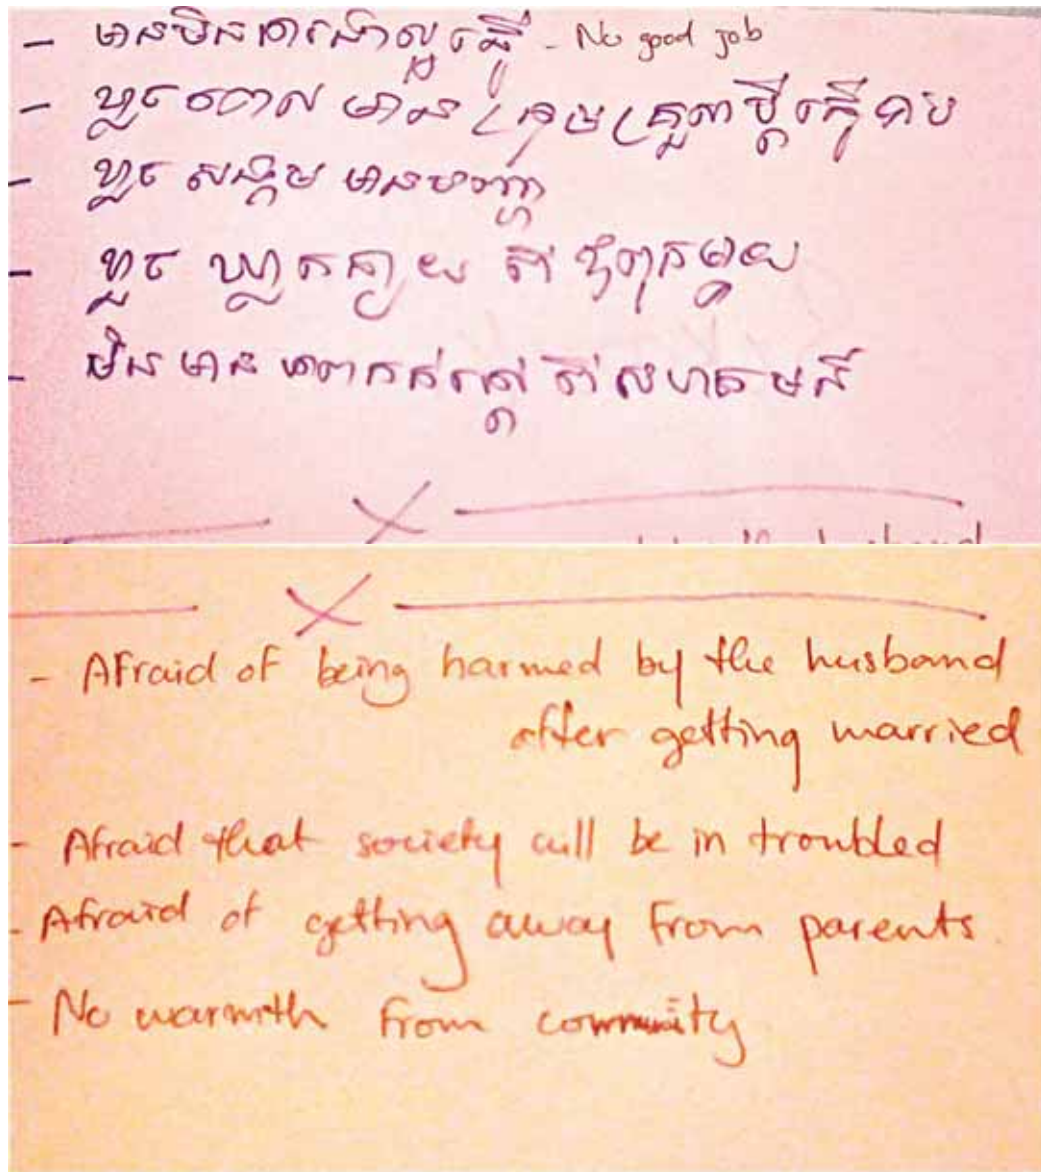 - មានមិនការងារល្អធ្វើ - No good job
- ខ្លាចពេលមានក្រុមគ្រួសារប្តីធ្វើបាប
- ខ្លាច សង្គម មានបញ្ហា
- ខ្លាច ឃ្លាតឆ្ងាយ ពី ឪពុកម្តាយ
- មិន មាន ភាពកក់ក្តៅ ពី សហគមន៍
- Afraid of being harmed by the husband
after getting married
- Afraid that society will be in troubled
- Afraid of getting away from parents.
- No warmth from community